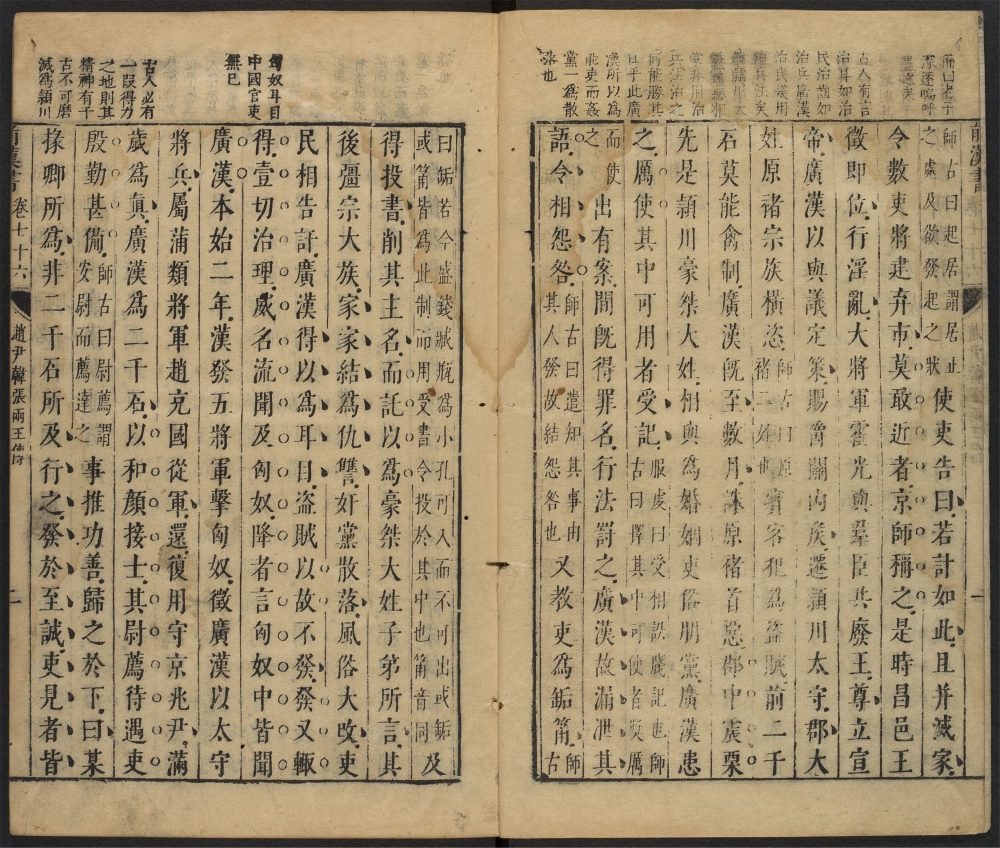 師古曰起居謂居止
之處及欲發起之狀
使吏告曰若計如此且并滅家
令數吏將建弃市莫敢近者京師稱之是時昌邑王
徵即位行淫亂大將軍霍光與羣臣共廢王尊立宣
帝廣漢以與議定策賜爵關內矦遷潁川太守郡大
姓原褚宗族橫恣
師古曰原
褚二姓也
賓客犯為盜賊前二千
石莫能禽制廣漢旣至數月誅原褚首惡郡中震栗
先是潁川豪桀大姓相與為婚姻吏俗朋黨廣漢患
之厲使其中可用者受記
服虔曰受相訟牋記也師
古曰擇其中可使者奨厲
而使
之
出有案問旣得罪名行法罰之廣漢故漏泄其
語令相怨咎
師古曰遣知其事由
其人發故結怨咎也
又教吏為缿筩
師
古
曰缿若今盛錢臧瓶為小孔可入而不可出或缿
或筩皆為此制而用受書令投於其中也筩音同
及
得投書削其主名而託以為豪桀大姓子弟所言其
後彊宗大族家家結為仇讐奸黨散落風俗大改吏
民相告訐廣漢得以為耳目盜賊以故不發發又輒
得壹切治理威名流聞及匈奴降者言匈奴中皆聞
廣漢本始二年漢發五將軍擊匈奴徵廣漢以太守
將兵屬蒲類將軍趙充國從軍還復用守京兆尹滿
歲為眞廣漢為二千石以和顏接士其尉薦待遇吏
殷勤甚備
師古曰尉薦謂
安尉而薦達之
事推功善歸之於下曰某
掾卿所為非二千石所及行之發於至誠吏見者皆
前漢書 卷七十六 趙尹韓張兩王傳 一
古人有言
治耳如治
民治齒如
治兵廣漢
黨一為散
落也
匈奴耳目
中國官吏
無已
古人必有
一段得力
之地則其
精神有千
古不可磨
滅為潁川